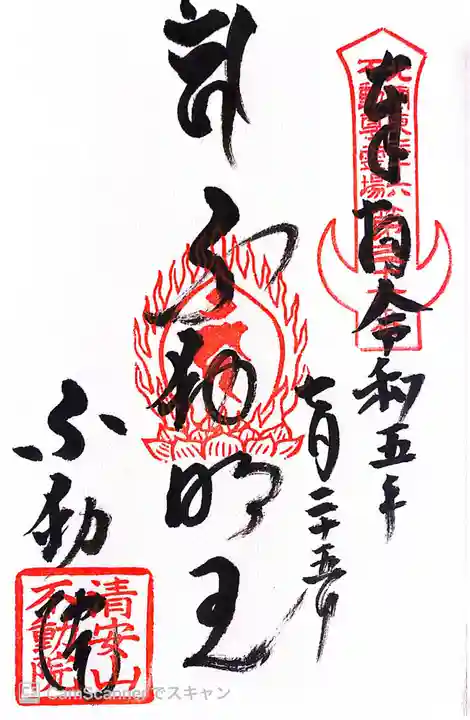 奉拝
令和五年
七月二十五日
不動明王
不動院
北関東三十六
不動尊霊場
清安山
不動院
CamScannerでスキャン